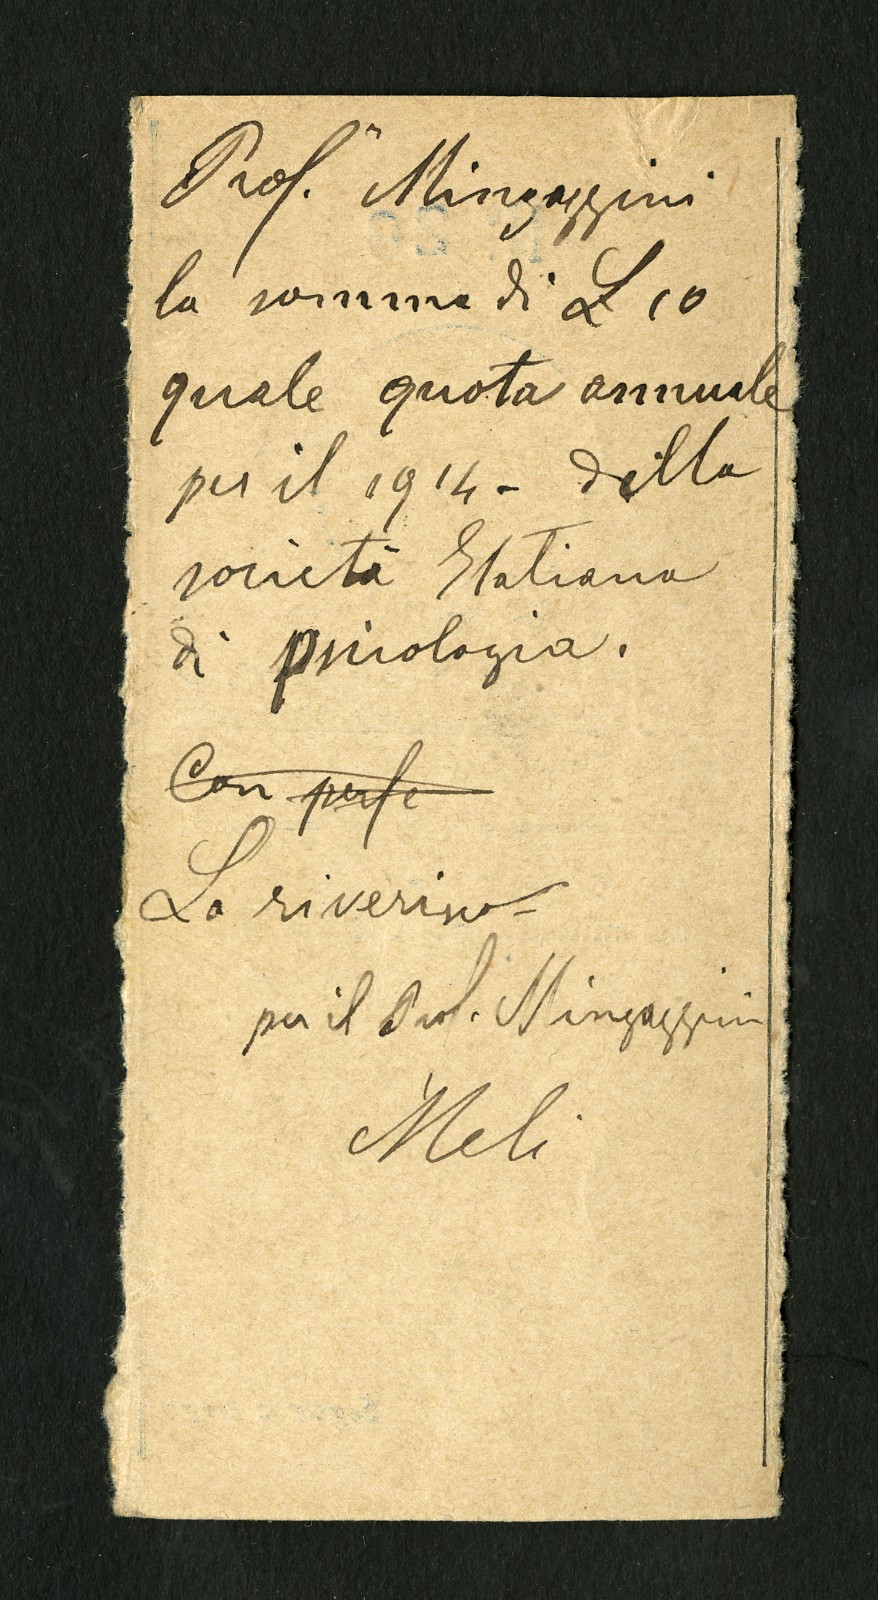 Prof. Mingazzini
la somma di L 10
quale quota annuale
per il 1914 - della
società Italiana
di psicologia.
Con perfe
La riverisco -
per il Prof. Mingazzini
Meli